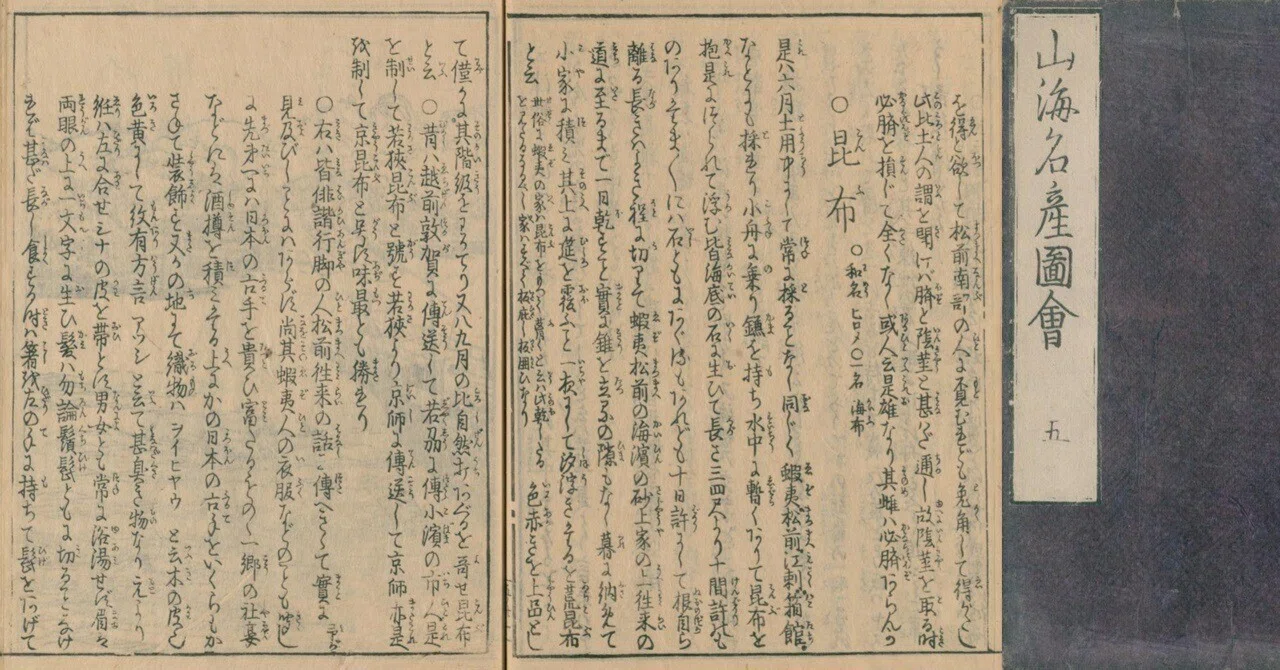 を得んと欲して松前南部の人に頼むといへども兎角して得がたし
此比土人の謂を聞けバ臍と陰莖と甚はだ通し故陰莖を取る時
必臍を損じて全くなし或人云是雄なり其雌ハ必臍あらんか
○昆布 ○和名ヒロメ○一名 海布
是ハ六月土用中にして常に採ることなし同じく蝦夷松前江刺箱館
などにも採れり小舟に乗り鎌を持ち水中に暫くありて昆布を
抱き是につられて浮む皆海底の石に生ひて長さ三四尺より十間許にも
のありそまゝにハ石ともにあぐるもあれども十日許にして根自ら
離る長きハよき程に切りて蝦夷松前の海濱の砂上家の上往来の
道に至るまで一日乾すこと實に錐を立るの隙もなし暮に納めて
小家に積ミ其上に莚を覆ふこと一夜にして汐浮きたるを荒昆布
と云 世俗に蝦夷の家ハ昆布をもつて葺くと云ハ此乾したるをみたるなるべし家ハ板庇板囲ひなり 色赤きを上品とし
て僅に其階級をわてり又八九月の比自然打あぐるを寄せ昆布
と云 ○昔ハ越前敦賀に傳送して若刕に傳小濱の市人是
を制して若狭昆布と號す若狭より京師に傳送して京師亦是
を制して京昆布と号味最とも勝れり
○右ハ皆俳諧行脚の人松前往来の話を傳へきゝて實に
見及びしことにハあらず尚其蝦夷人の衣服などのことも噂し
に先第一にハ日本の古手を貴ひ富たるものハ一郷の社宴
などにハ酒樽を積ミそる上にかの日本の古手をいくらもか
さねて装飾す又かの地にて織物ハシイヒヤウと云木の皮也
色黄にして紋有方言アツシと云て甚臭き物なりえもり
衽ハ左に合せシナの皮を帯とす男女とも常に浴湯せず眉ハ
両眼の上に一文字に生ひ髪ハ勿論鬚髭ともに切ることなけ
れバ甚ご長し食する時ハ箸を左の手に持ちて髭をあげて
山海名産圖會 五